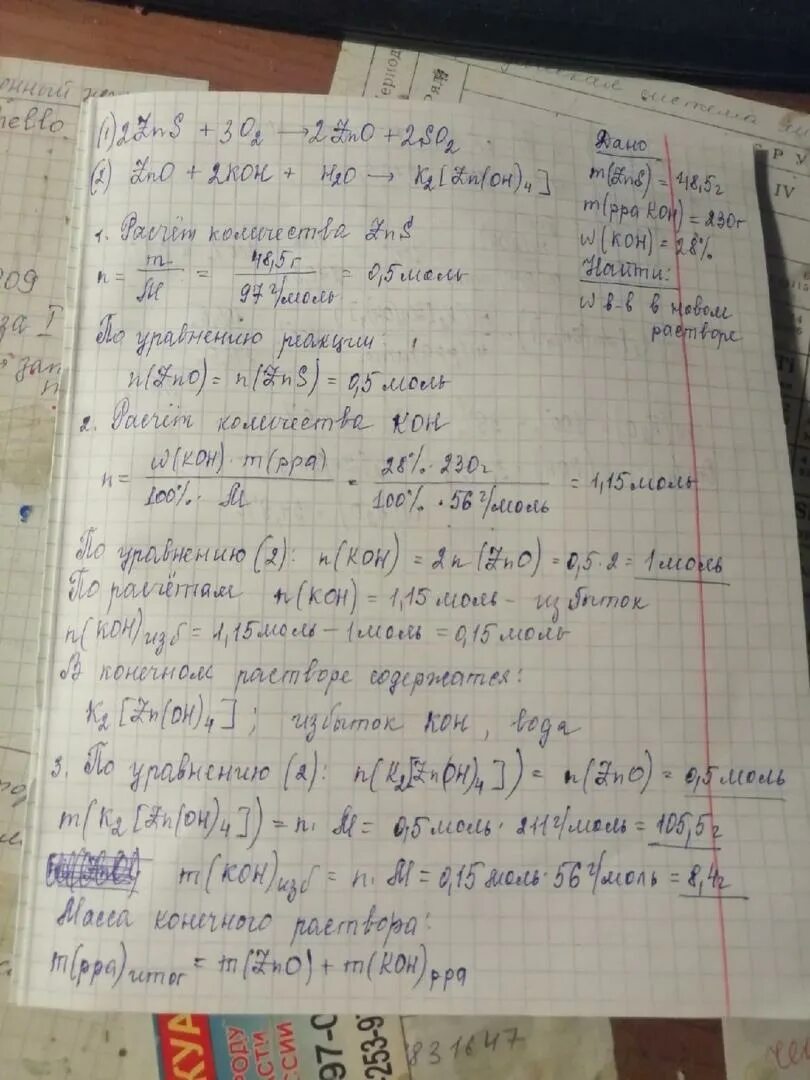 онный
невло
(1) 2ZnS + 3O₂ → 2ZnO + 2SO₂
(2) ZnO + 2KOH + H₂O → K₂[Zn(OH)₄]
Дано
m(ZnS) = 48,5г
m(рра KOH) = 230г
w(KOH) = 28%
Найти:
w в-в в новом
растворе
1. Расчёт количества ZnS
n = m/M = 48,5г/97 г/моль = 0,5 моль
По уравнению реакции:
n(ZnO) = n(ZnS) = 0,5 моль
2. Расчёт количества KOH
n = w(KOH) · m(рра)/100% · M = 28% · 230г/100% · 56 г/моль = 1,15 моль
По уравнению (2): n(KOH) = 2n(ZnO) = 0,5 · 2 = 1 моль
По расчётам n(KOH) = 1,15 моль – избыток
n(KOH)изб = 1,15 моль – 1 моль = 0,15 моль
В конечном растворе содержатся:
K₂[Zn(OH)₄]; избыток KOH, вода
3. По уравнению (2): n(K₂[Zn(OH)₄]) = n(ZnO) = 0,5 моль
m(K₂[Zn(OH)₄]) = n · M = 0,5 моль · 211 г/моль = 105,5г
m(KOH)изб = n · M = 0,15 моль · 56 г/моль = 8,4г
Масса конечного раствора:
m(рра)итог = m(ZnO) + m(KOH)рра
система
Ряд
IV
209
за I
КУА
РОДУ
АСТИ
ССИИ
97-0
-253-9
831647